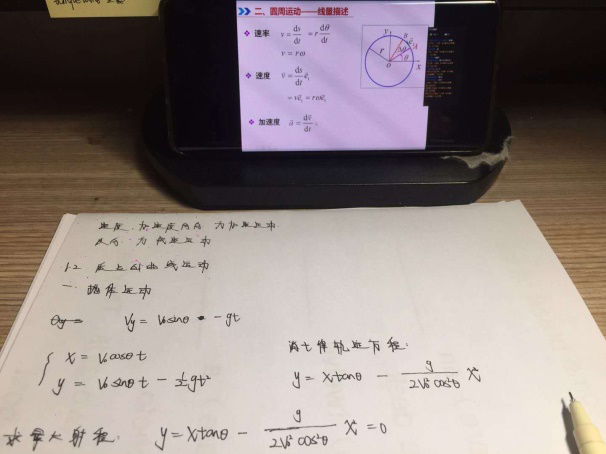 二、圆周运动——线量描述
速率 v = ds/dt = r dθ/dt
v = rω
速度 v⃗ = ds/dt e⃗ₜ
= ve⃗ₜ = rωe⃗ₜ
加速度 a⃗ = dv⃗/dt
y
r
θ
O
x
速度、加速度同向 为加速运动
反向 为减速运动
1.2 质点的曲线运动
一、抛体运动
Vy = V₀sinθ - gt
x = V₀cosθ t
y = V₀sinθ t - ½gt²
消七得轨迹方程:
y = xtanθ - g/(2V₀²cos²θ) x²
求最大射程: y = xtanθ - g/(2V₀²cos²θ) x² = 0